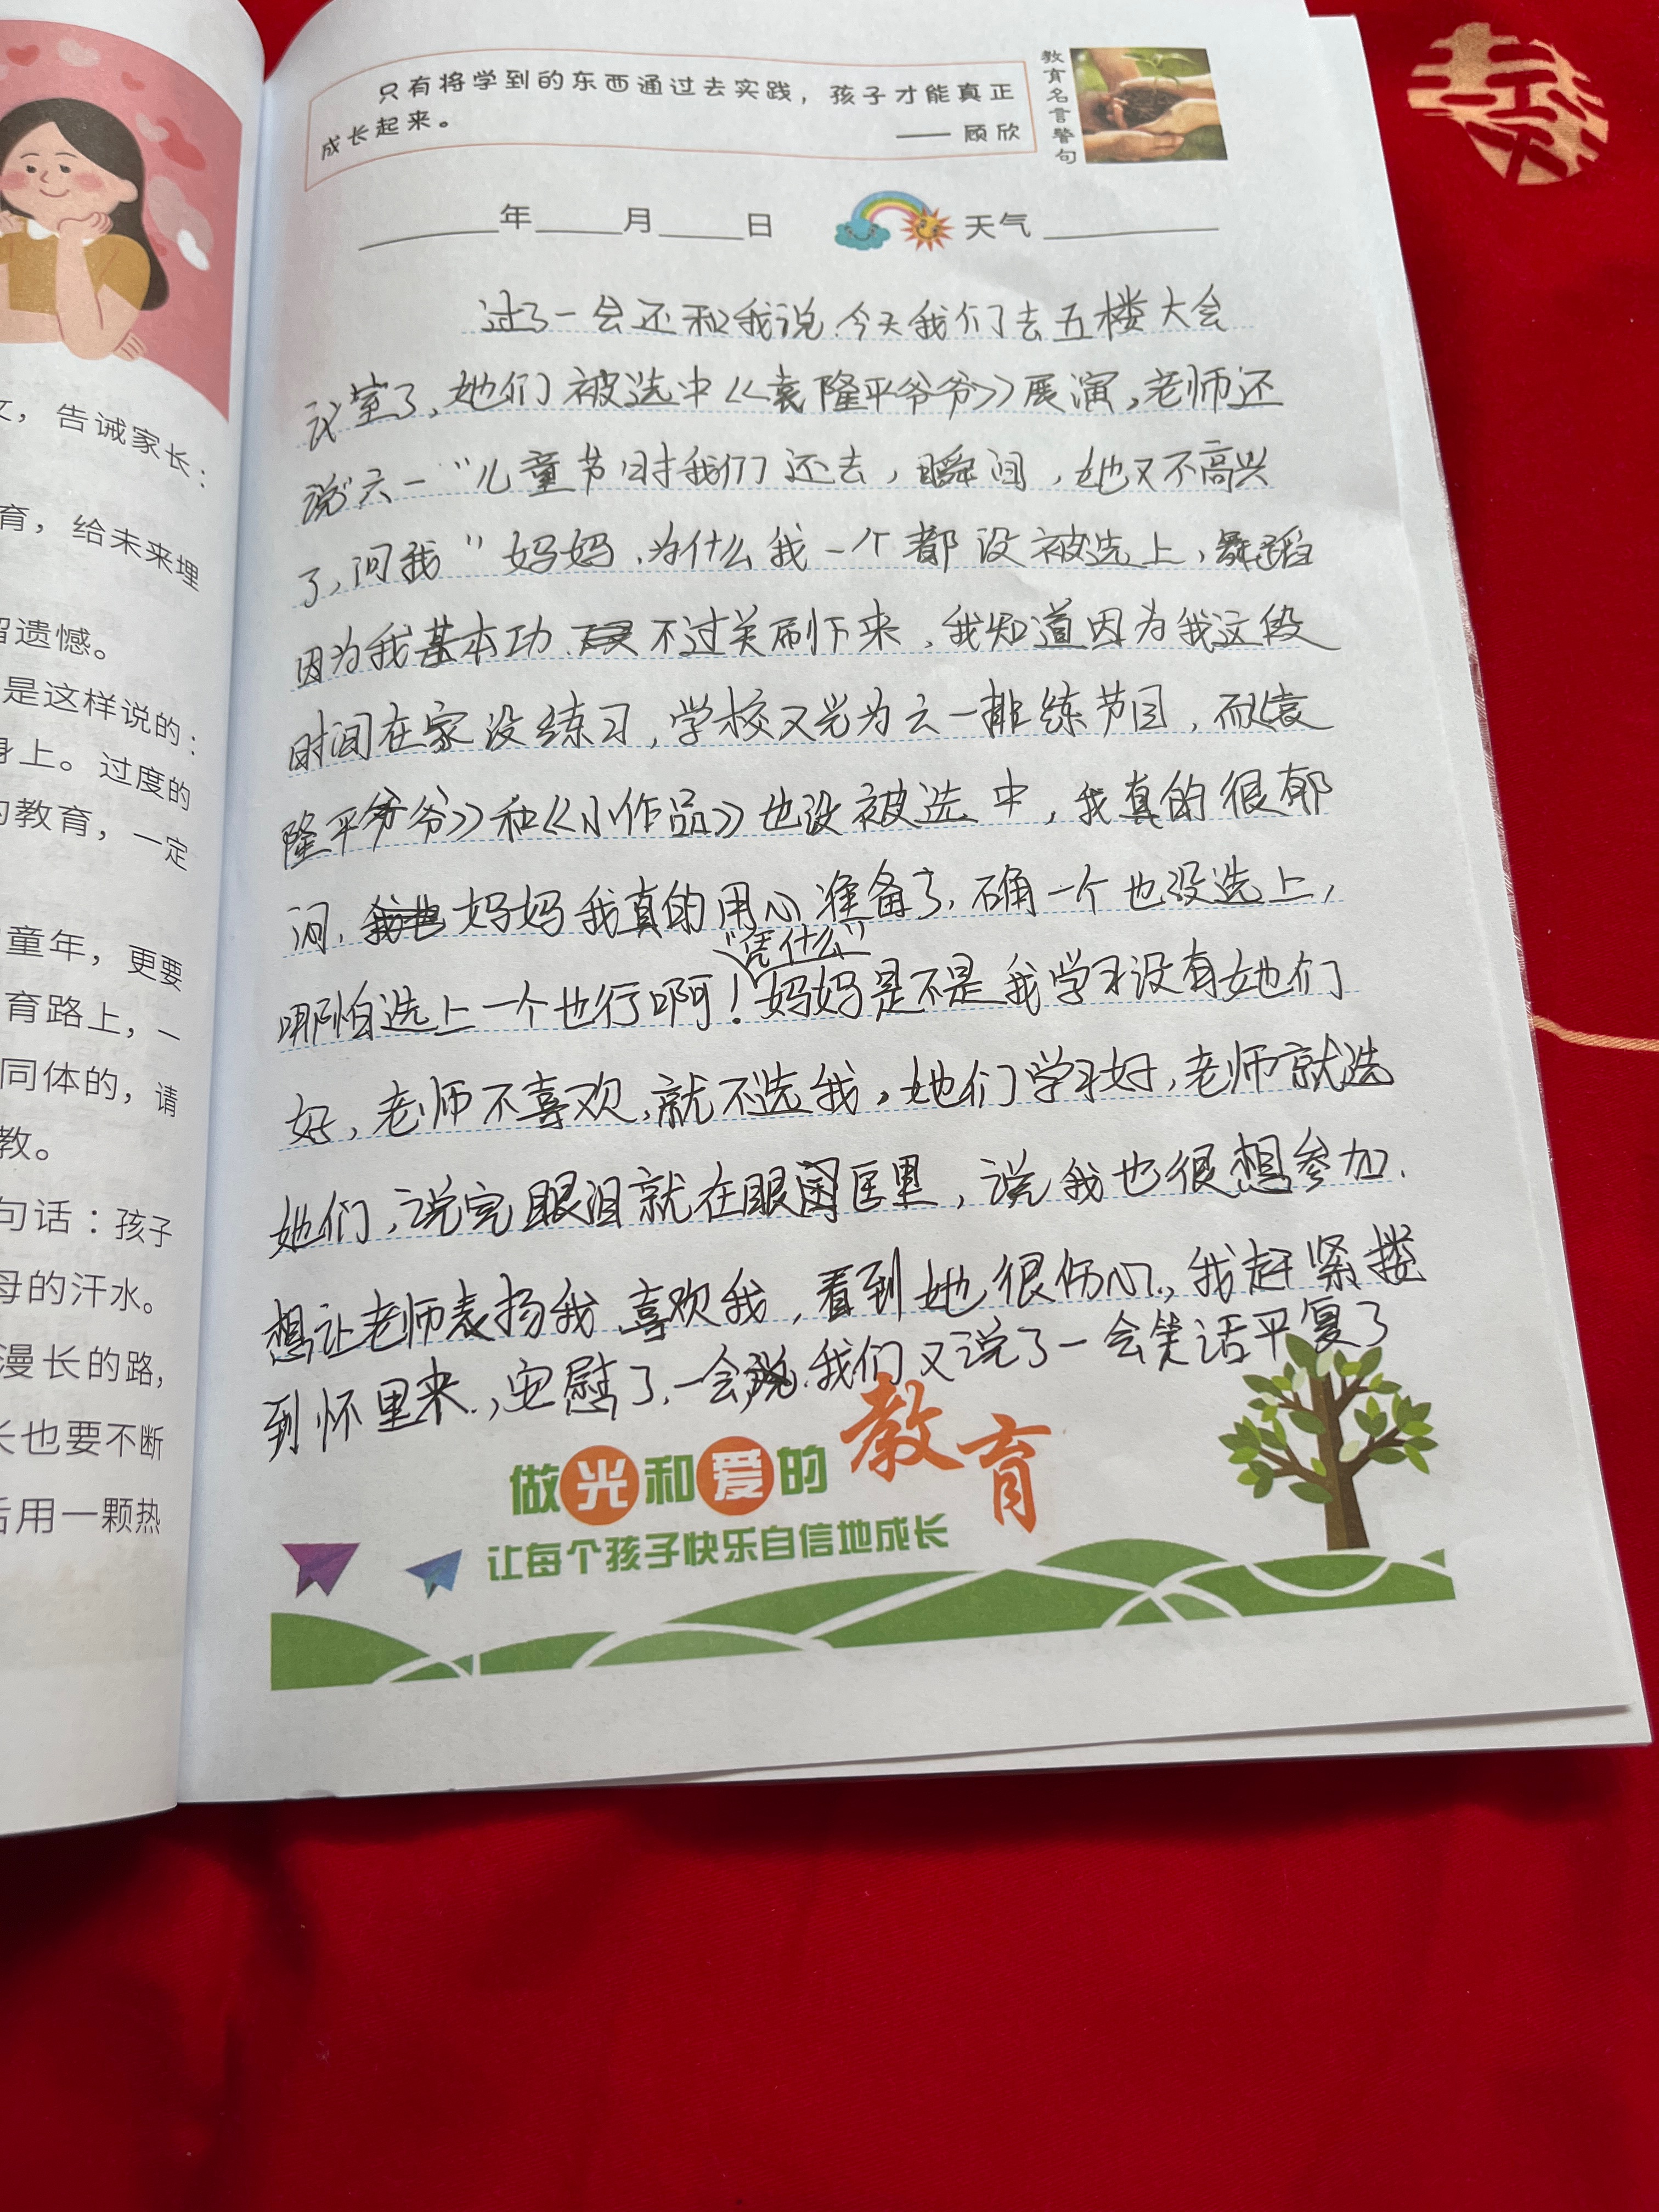 文，告诫家长：
育，给未来埋
留遗憾。
是这样说的：
身上。过度的
的教育，一定
童年，更要
育路上，一
同体的，请
教。
句话：孩子
母的汗水。
漫长的路，
长也要不断
后用一颗热
只有将学到的东西通过去实践，孩子才能真正
成长起来。
—— 顾欣
教育名言警句
年 月 日 天气
过了一会还和我说.今天我们去五楼大会
议室了，她们被选中《袁隆平爷爷》展演，老师还
说“六一”儿童节时我们还去，瞬间，她又不高兴
了，问我“妈妈，为什么我一个都没被选上，舞蹈
因为我基本功 不过关刷下来，我知道因为我这段
时间在家没练习，学校又光为六一排练节目，而《袁
隆平爷爷》和《小作品》也没被选中，我真的很郁
闷， 妈妈我真的用心准备了，确一个也没选上，
“凭什么”
哪怕选上一个也行啊！妈妈是不是我学习没有她们
好，老师不喜欢，就不选我，她们学习好，老师就选
她们，说完眼泪就在眼 匡里，说我也很想参加.
想让老师表扬我.喜欢我，看到她很伤心，我赶紧搂
到怀里来，安慰了.一会 .我们又说了一会笑话平复了
做光和爱的教育
让每个孩子快乐自信地成长